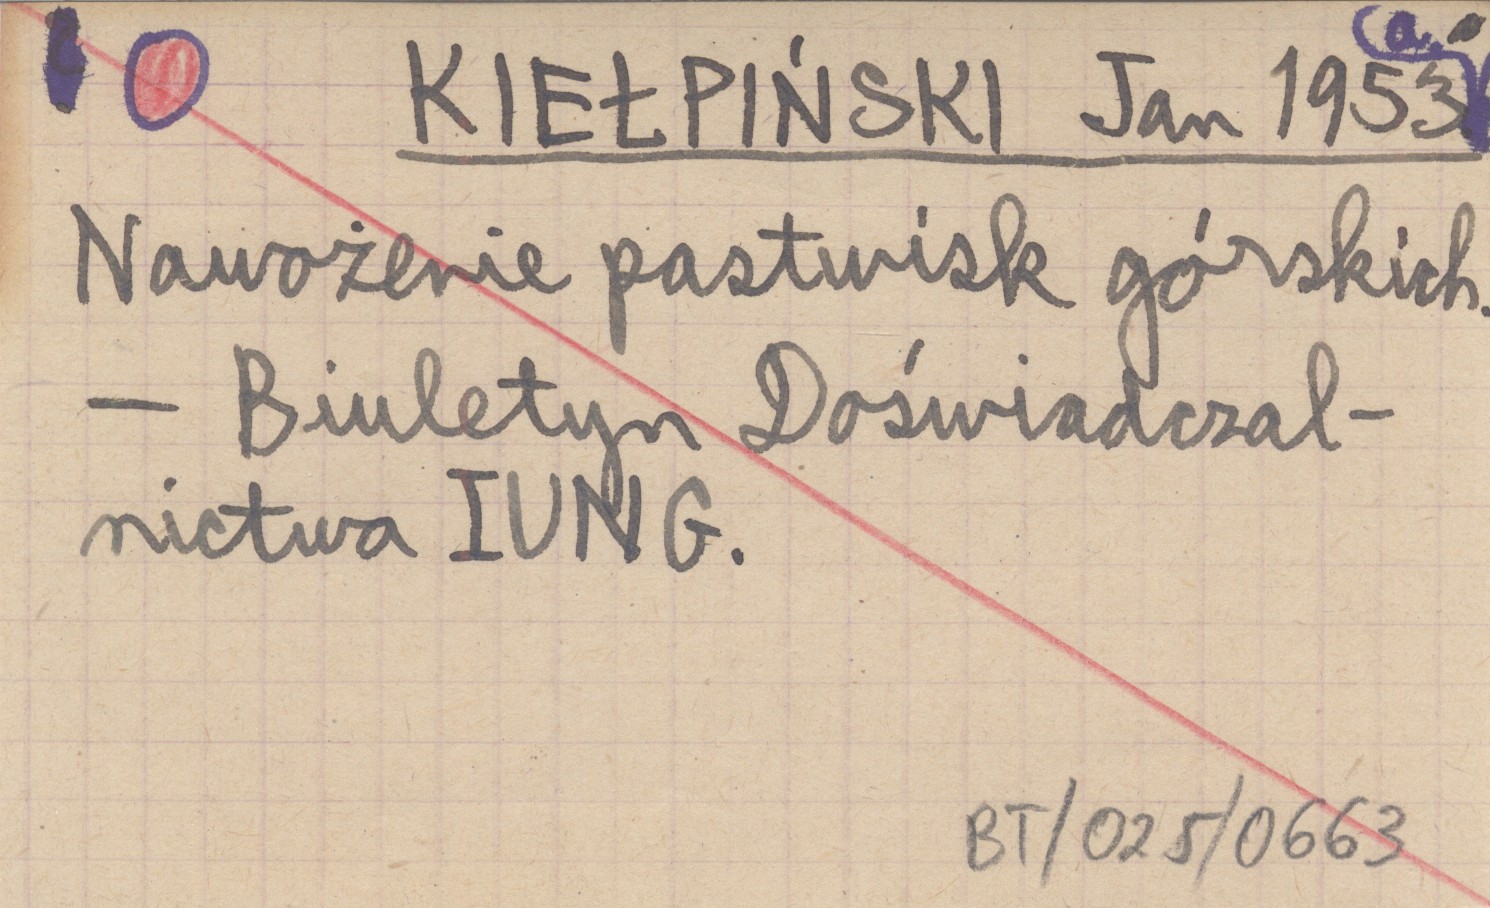 KIEŁPIŃSKI Jan 1953 a.
Nawożenie pastwisk górskich.
— Biuletyn Doświadczal-
nictwa IUNG.
BT/025/0663